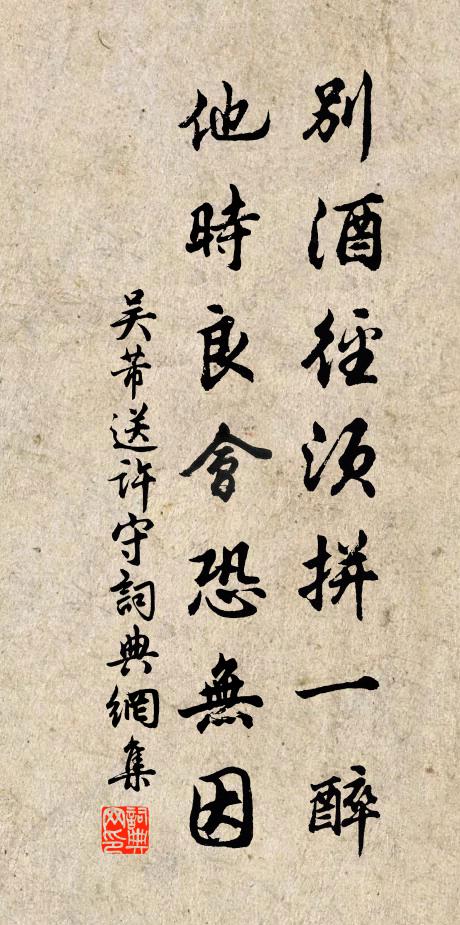 別酒徑須拼一醉
他時良會恐無因
吴芾送許守詞典網集
詞典網印